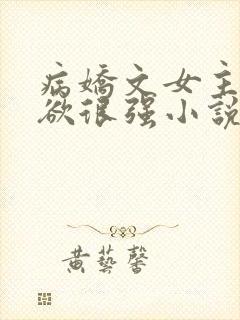 病嬌文女主
欲很强小說
黄藝馨